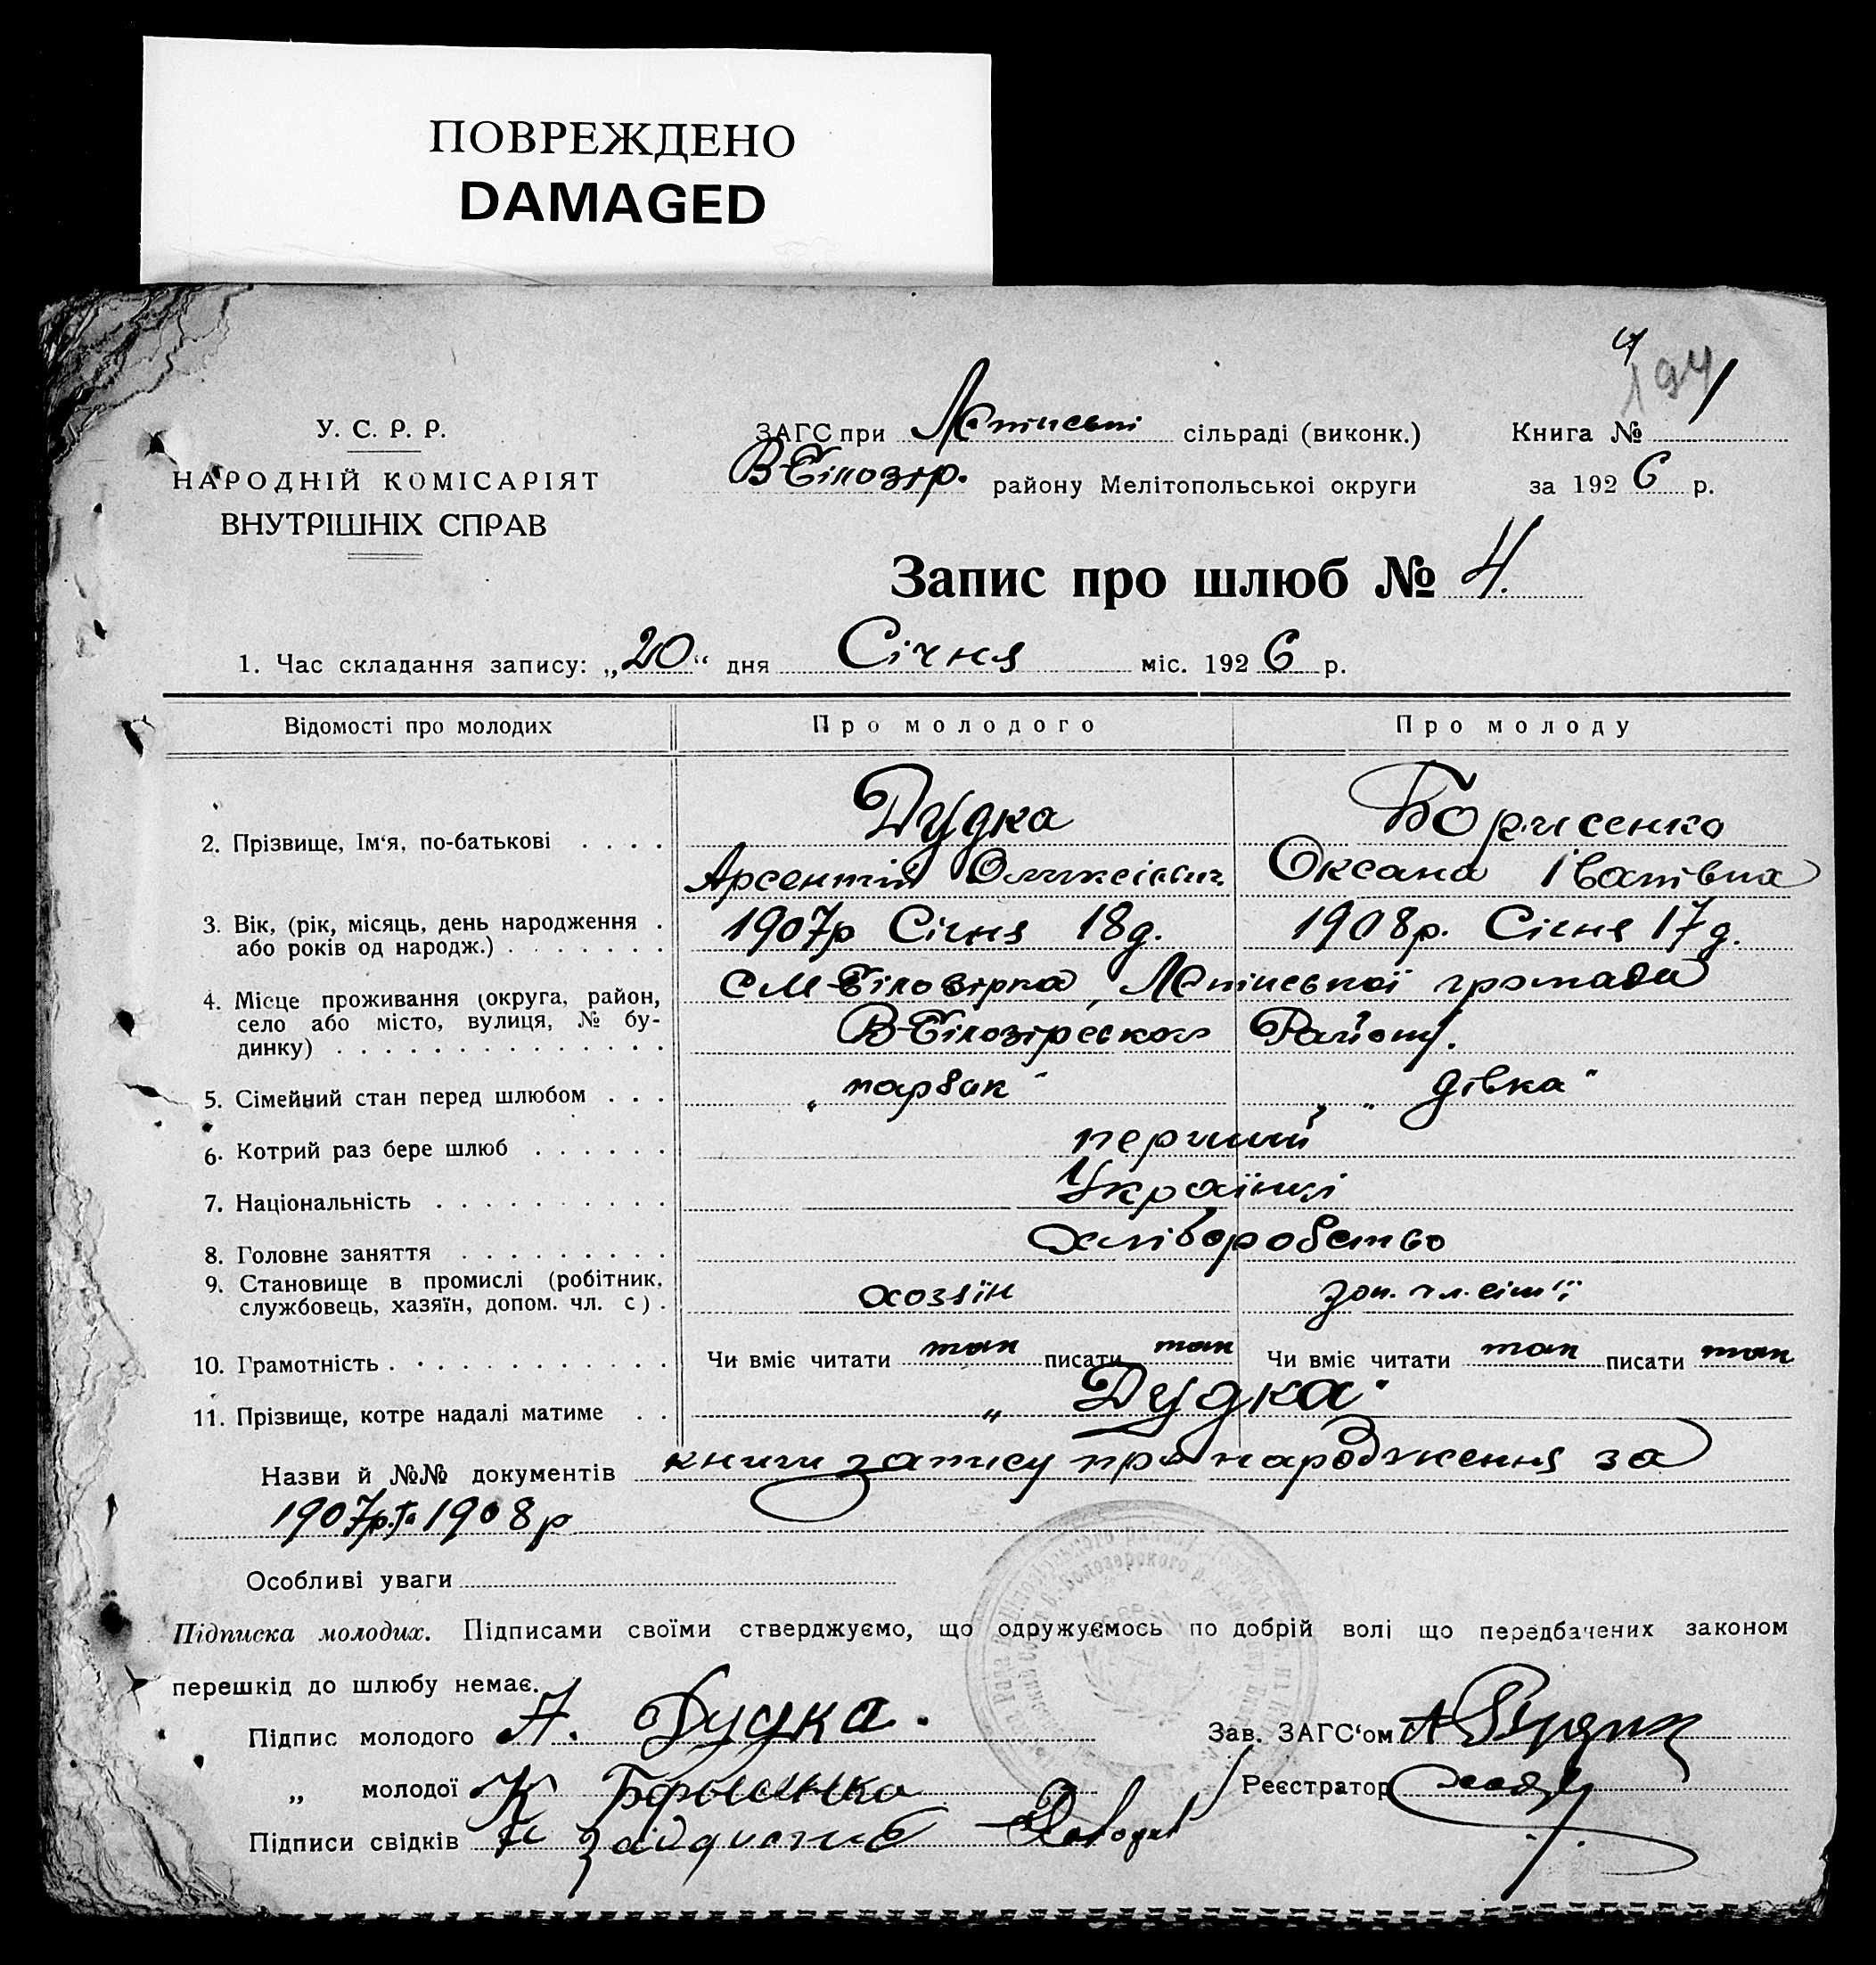 ПОВРЕЖДЕНО
DAMAGED
194
У. С. Р. Р.
НАРОДНІЙ КОМІСАРІЯТ
ВНУТРІШНІХ СПРАВ
ЗАГС при сільраді (виконк.) Книга №
В-Білозір. району Мелітопольської округи за 1926 р.
Запис про шлюб № 4.
1. Час складання запису: „20“ дня Січня міс. 1926 р.
Відомості про молодих Про молодого Про молоду
2. Прізвище, Ім‘я, по-батькові . . . . Дудка Борисенко
Арсентій Олексієвич Оксана Іванівна
3. Вік, (рік, місяць, день народження . або років од народж.) . . . . . . . 1907р Січня 18д. 1908р. Січня 17д.
4. Місце проживання (округа, район, село або місто, вулиця, № будинку) . . . . . . . . . . . . . . с М-Білозірка, громади
В-Білозірського Району.
5. Сімейний стан перед шлюбом . . . „парбак“ „дівка“
6. Котрий раз бере шлюб . . . . . . перший
7. Національність . . . . . . . . . . Українці
8. Головне заняття . . . . . . . . . хліборобство
9. Становище в промислі (робітник, службовець, хазяїн, допом. чл. с) . хозяїн доп. чл. сім'ї
10. Грамотність . . . . . . . . . . . . Чи вміє читати так писати так Чи вміє читати так писати так
11. Прізвище, котре надалі матиме . . „Дудка“
Назви й №№ документів книги запису про народження за
1907р. та 1908р
Особливі уваги
Підписка молодих. Підписами своїми стверджуємо, що одружуємось по добрій волі що передбачених законом
перешкід до шлюбу немає.
Підпис молодого А. Дудка. Зав. ЗАГС‘ом
„ молодої К Реєстратор
Підписи свідків